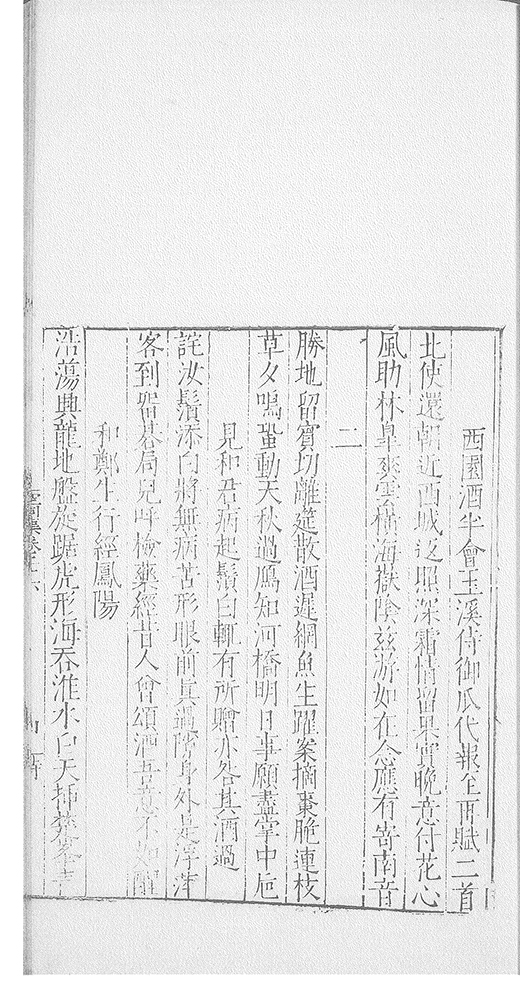 西園酒半會玉溪侍御瓜代報至再賦二首
北使還朝近西城返照深霜情留果實晚意付花心
風助林皐爽雲橫海嶽陰玆游如在念應有寄南音
二
勝地留賓切離筵散酒遲網魚生躍案摘棗脆連枝
草夕鳴蛩動天秋過鴈知河橋明日事願盡掌中巵
見和君病起鬚白輒有所贈亦咎其酒過
詫汝鬚添白將無病苦形眼前真過隙身外是浮萍
客到留碁局兒呼檢藥經昔人曾頌酒吾意不如醒
和鄭生行經鳳陽
浩蕩興龍地盤旋踞虎形海吞淮水白天揷